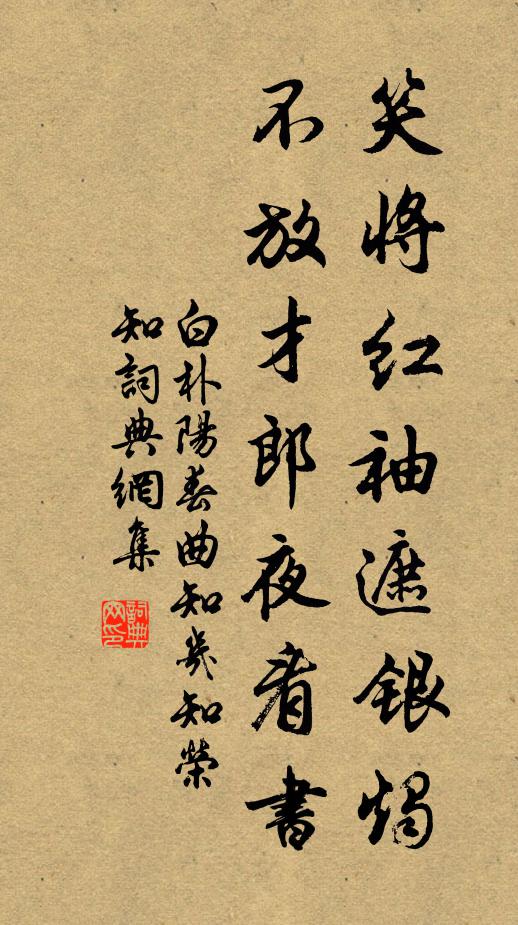 笑将红袖遮银烛
不放才郎夜看書
白朴陽春曲知幾知榮
知詞典網集
詞典
网印